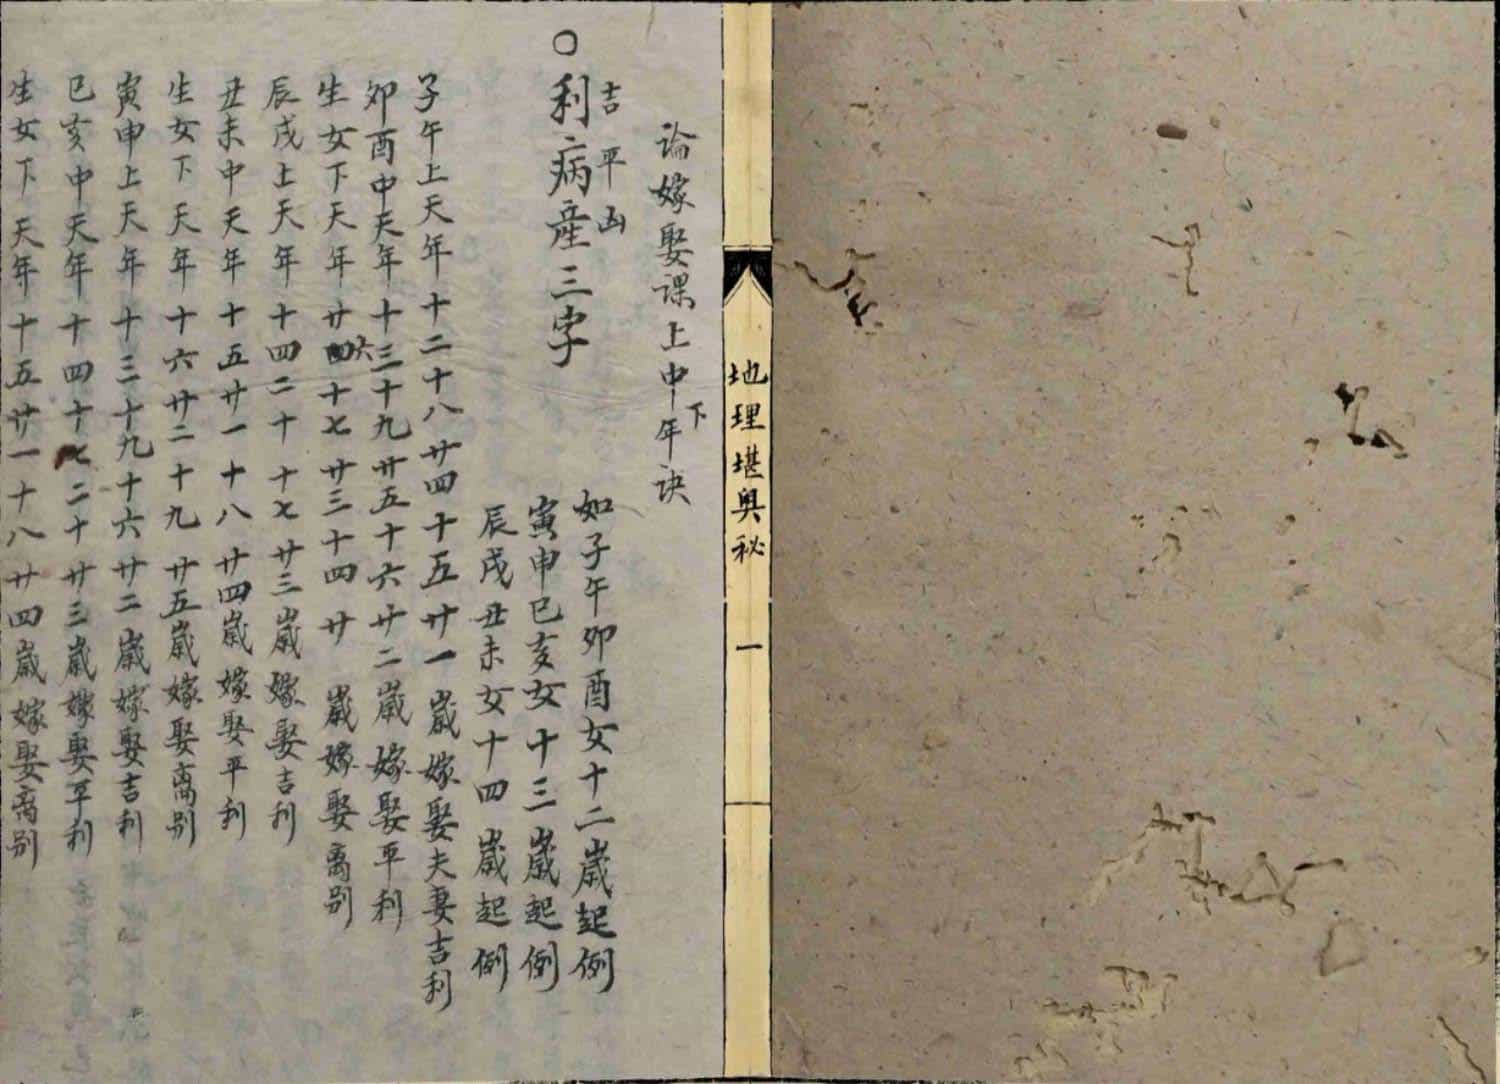 地理堪輿秘 一
论嫁娶课上中下年诀
吉平凶
○利病産三字
如子午卯酉女十二歲起例
寅申巳亥女十三歲起例
辰戌丑未女十四歲起例
子午上天年十二十八廿四十五廿一歲嫁娶夫妻吉利
卯酉中天年十三十九廿五十六廿二歲嫁娶平利
生女下天年廿六十七廿三十四廿歲嫁娶离别
辰戌上天年十四二十十七廿三歲嫁娶吉利
丑未中天年十五廿一十八廿四歲嫁娶平利
生女下天年十六廿二十九廿五歲嫁娶离别
寅申上天年十三十九十六廿二歲嫁娶吉利
巳亥中天年十四十七二十廿三歲嫁娶平利
生女下天年十五廿一十八廿四歲嫁娶离别